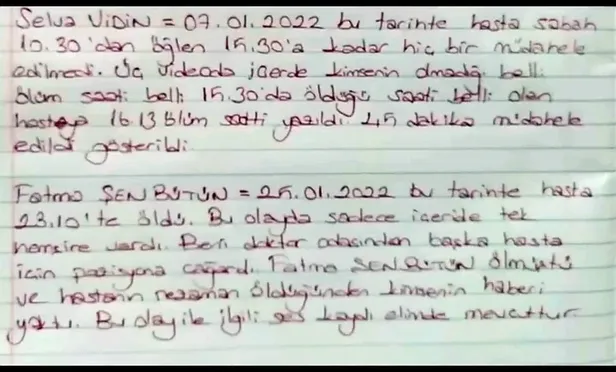 Selva VİDİN = 07.01.2022 bu tarihte hasta sabah
10.30'dan öğlen 15.30'a kadar hiç bir müdahele
edilmedi. Üç videoda içerde kimsenin olmadığı belli.
ölüm saati belli 15.30'da öldüğü saati belli olan
hastaya 16.13 ölüm saatti yazıldı. 45 dakika müdahele
edildi gösterildi.
Fatma ŞENBÜTÜN = 25.01.2022 bu tarihte hasta
23.10'te öldü. Bu olayda sadece içeride tek
hemşire vardı. Beni doktor odasından başka hasta
için pozisyona çağırdı. Fatma ŞENBÜTÜN ölmüştü
ve hastanın nezaman öldüğünden kimsenin haberi
yoktu. Bu olay ile ilgili ses kaydı elimde mevcuttur.